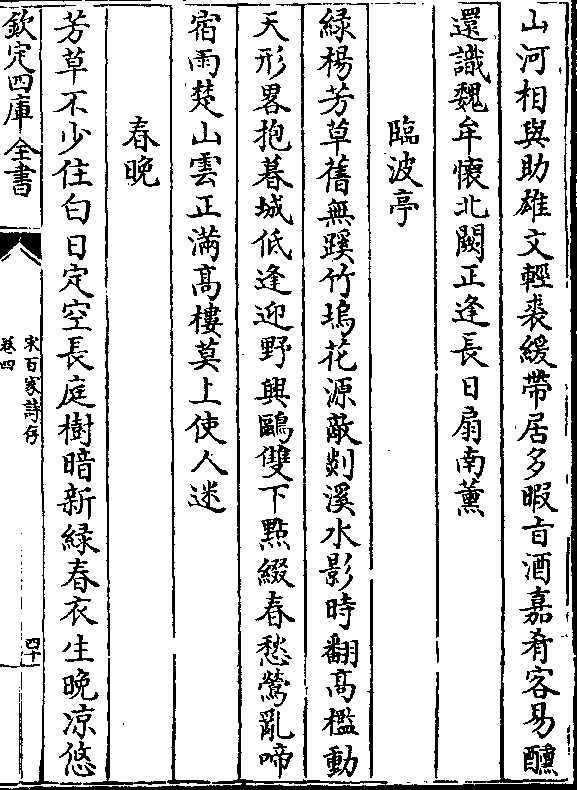 山河相與助雄文輕裘緩帶居多暇㫖酒嘉肴客易醺
還識魏牟懷北闕正逢長日扇南薰
臨波亭
緑楊芳草舊無蹊竹塢花源敵剡溪水影時翻髙檻動
天形畧抱暮城低逢迎野興鷗雙下㸃綴春愁鶯亂啼
宿雨楚山雲正滿髙樓莫上使人迷
春晚
芳草不少住白日定空長庭樹暗新緑春衣生晚凉悠
欽定四庫全書
宋百家詩存
卷四
四十